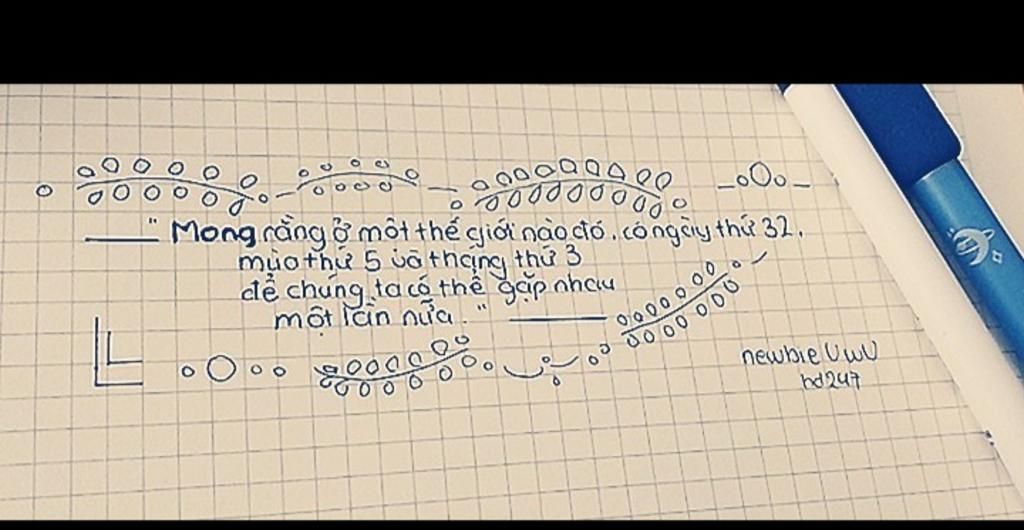 " Mong rằng ở một thế giới nào đó, có ngày thứ 32,
mùa thứ 5 và tháng thứ 3
để chúng ta có thể gặp nhau
một lần nữa. "
newbie UwU
hd247